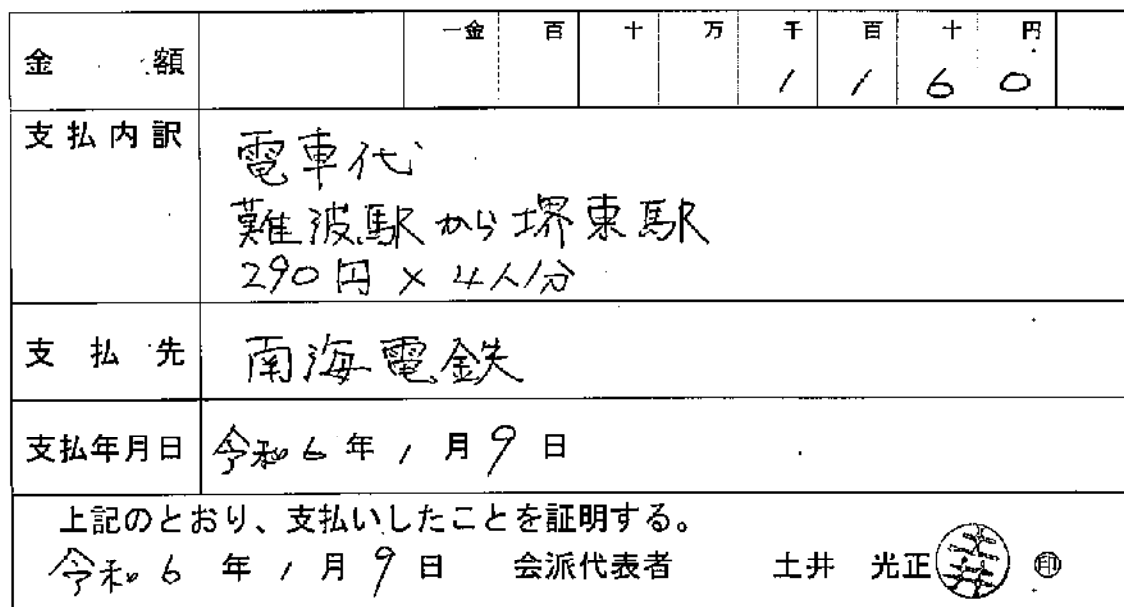 金額 一金 百 十 万 千 百 十 円
1 1 6 0
支払内訳
電車代
難波駅から堺東駅
290円 × 4人分
支払先 南海電鉄
支払年月日 令和6年1月9日
上記のとおり、支払いしたことを証明する。
令和6年1月9日 会派代表者 土井 光正 土井 ㊞